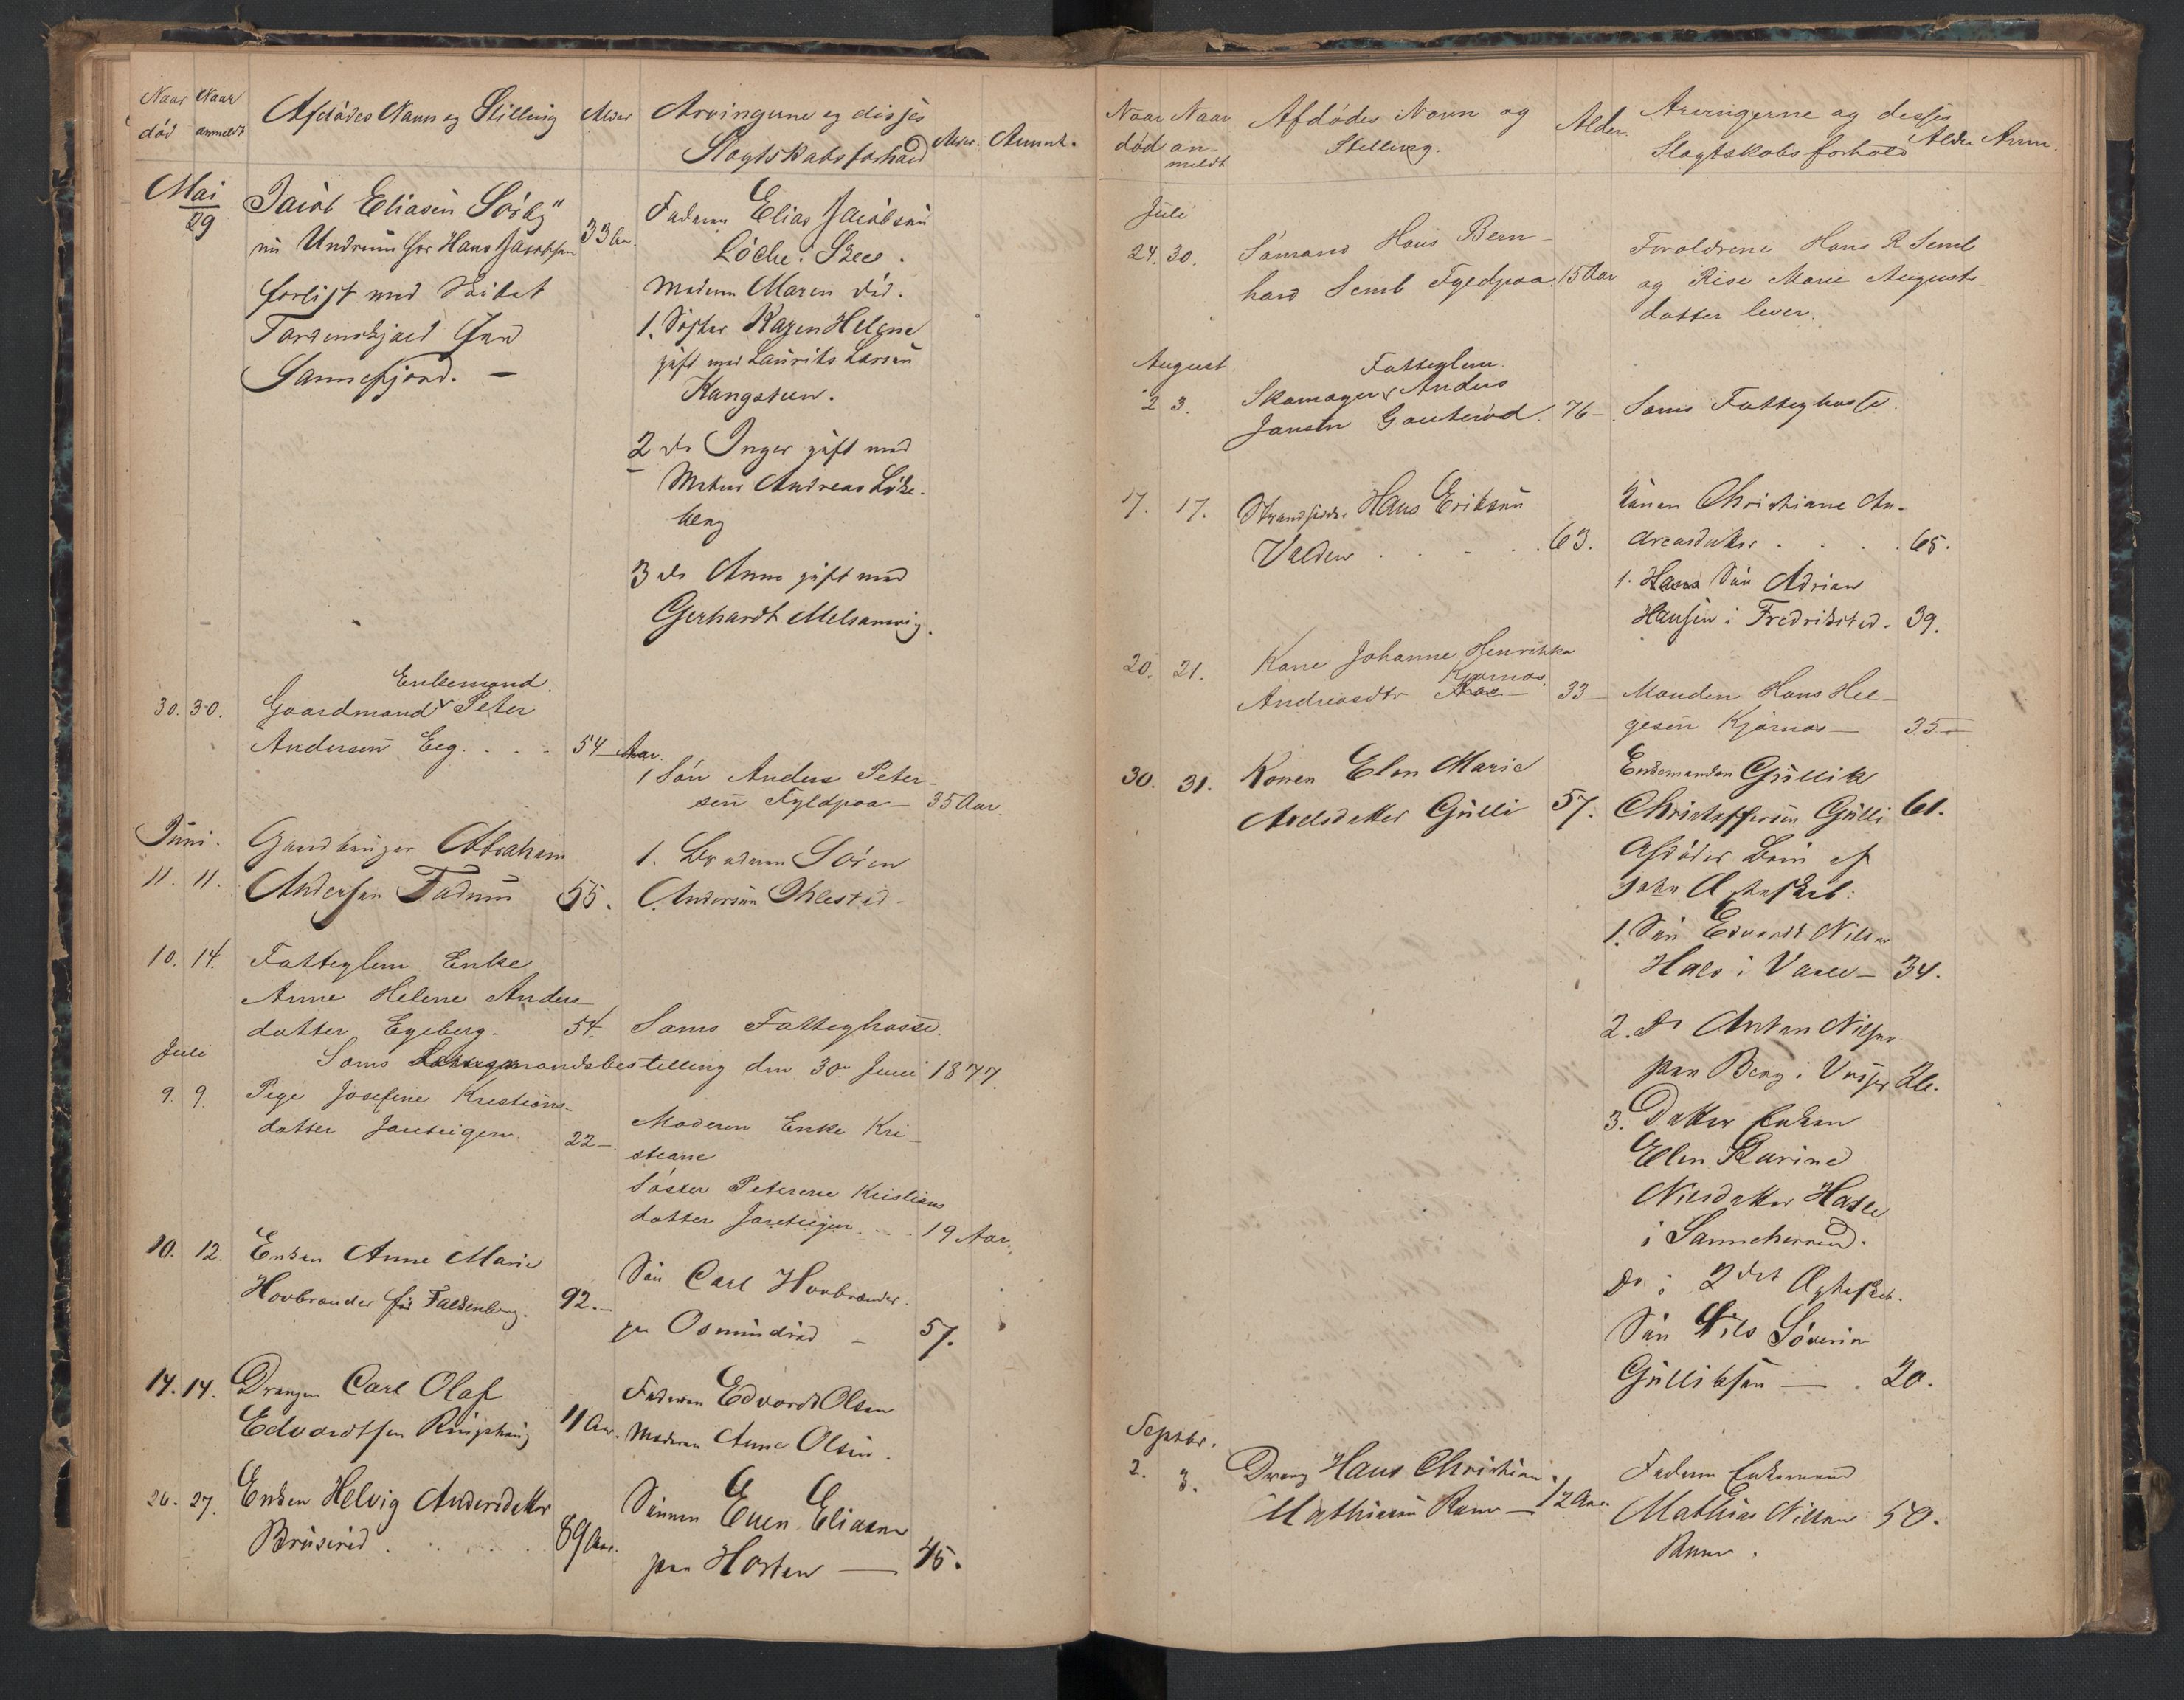 Naar Naar
død anmeldt
Afdødes Navn og Stilling
Alder
Arvingerne og disses
Slagtskabsforhold
Alder. Anmrk.
Mai
29
Jacob Eliasen
nu Undrum for Hans Jacobsen
forlist med Skibet
Tordenskjold fra
Sannefjord. —
33 Aar.
Faderen Elias Jacobsen
Løche i Skee.
Moderen Maren død.
1. Søster Karen Helene
gift med Laurits Larsen
Kangsteen.
2 do Inger gift med
Andreas Løke-
berg
3 do Anne gift med
Gerhardt Melsomvig.
Enkemand.
30. 30. Gaardmand Peter
Andersen Eeg. . . . 54 Aar.
1 Søn Anders Peter-
sen Fyldpaa — 35 Aar.
Juni. Gaardbruger Abraham
11. 11. Andersen Fadum 55.
1. Broderen Søren
Andersen
10. 14. Fatteglem Enke
Anne Helene Anders-
datter Egeberg. 54. Sems Fattigkasse.
Juli
Sems Lensmandsbestilling den 30te Juni 1877.
9. 9. Pige Josefine Kristians-
datter Jareteigen. 22 —
Moderen Enke Kri-
stiane
Søster Peterene Kristians
datter Jareteigen . . . 19 Aar.
10. 12. Enken Anne Marie
Hovbrender fød Faldenberg. 92. —
Søn Carl Hovbrender
paa Osmundrød — 57.
14. 14. Drengen Carl Olaf
Edvardtsen Ringshaug 11 Aar.
Faderen Edvardt Olsen
Moderen Anne Olsen.
26. 27. Enken Helvig Andersdatter
Bruserød . . . . 89 Aar.
Sønnen Even Eliasen
paa Horten — 45.
Naar Naar
død an-
meldt
Afdødes Navn og
Stilling.
Alder.
Arvingerne og disses
Slagtskabs forhold
Alder Anm.
Juli
24. 30. Sømand Hans Bern-
hard Semb Fyldpaa. 15 Aar
Foroldrene Hans R Semb
og Rise Marie Augusts-
datter lever.
August
Fatteglem.
2 3. Skomager Anders
Jansen Gauterød. 76 — Sems Fattigkasse.
17. 17. Strandsidder Hans Eriksen
Valden . . . . 63.
Konen Christiane An-
dreasdatter . . . . 65.
1. Hans Søn Adrian
Hansen i Fredrikstad. 39.
20. 21. Kone Johanne Henrikka
Kjørnes.
Andreasdtr Aas 33 —
Manden Hans Hel-
gesen Kjørnes — 35 —
30. 31. Konen Elen Marie
Axelsdatter Gulli 57.
Enkemanden Gullik
Christoffersen Gulli 61.
Afdødes Børn af
Ægteskab:
1. Søn Edvardt Nilsen
Hals i Vaale — 34.
2. do Anton Nilsen
paa Berg i
3. Datter Enken
Elen Karine
Nilsdatter Hasle
i Sanneherred.
Do i 2det Ægteskab.
Søn Nils Søverin
Gulliksen — . 20.
Septbr.
2. 3. Dreng Hans Christian
Mathiasen Ramm — 12 Aar.
Faderen Enkemand
Mathias Nilsen 50.
Ramm.